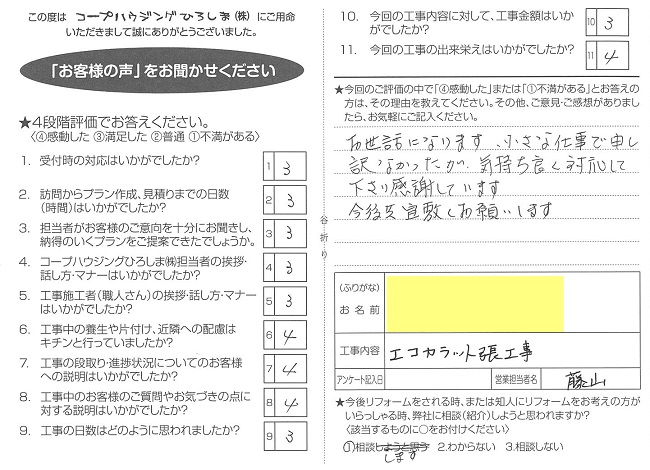 この度は コープハウジングひろしま(株) にご用命
いただきまして誠にありがとうございました。
「お客様の声」をお聞かせください
★4段階評価でお答えください。
〈④感動した ③満足した ②普通 ①不満がある〉
1. 受付時の対応はいかがでしたか? 1 3
2. 訪問からプラン作成、見積りまでの日数
(時間)はいかがでしたか? 2 3
3. 担当者がお客様のご意向を十分にお聞きし、
納得のいくプランをご提案できたでしょうか。 3 3
4. コープハウジングひろしま㈱担当者の挨拶・
話し方・マナーはいかがでしたか? 4 3
5. 工事施工者(職人さん)の挨拶・話し方・マナー
はいかがでしたか? 5 3
6. 工事中の養生や片付け、近隣への配慮は
キチンと行っていましたか? 6 4
7. 工事の段取り・進捗状況についてのお客様
への説明はいかがでしたか? 7 4
8. 工事中のお客様のご質問やお気づきの点に
対する説明はいかがでしたか? 8 4
9. 工事の日数はどのように思われましたか? 9 3
谷折り
10. 今回の工事内容に対して、工事金額はいか
がでしたか? 10 3
11. 今回の工事の出来栄えはいかがでしたか? 11 4
★今回のご評価の中で「④感動した」または「①不満がある」とお答え
の方は、その理由を教えてください。その他、ご意見・ご感想がありまし
たら、お気軽にご記入ください。
お世話になります、小さな仕事で申し
訳なかったが、気持ち良く対応して
下さり感謝しています
今後も宜敷くお願いします
(ふりがな)
お名前
工事内容 エコカラット張工事
アンケート記入日 営業担当者名 藤山
★今後リフォームをされる時、または知人にリフォームをお考えの方が
いらっしゃる時、弊社に相談(紹介)しようと思われますか?
〈該当するものに○をお付けください〉
①相談しようと思う 2.わからない 3.相談しない
します